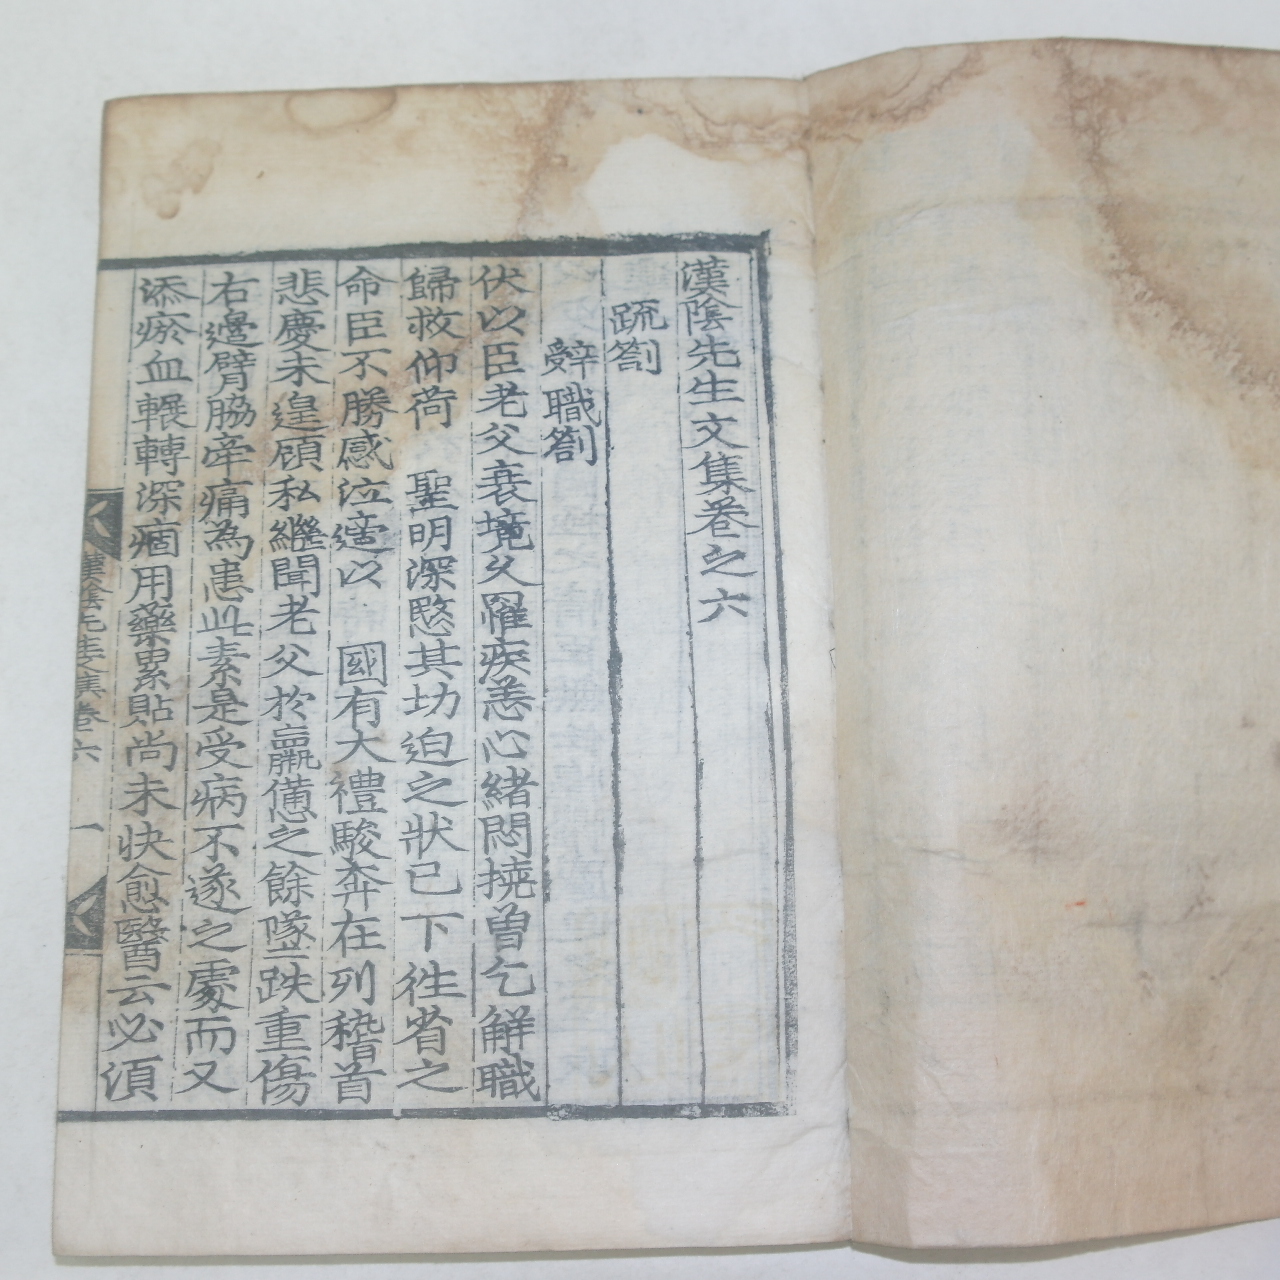 漢陰先生文集卷之六
疏劄
辭職劄
伏以臣老父衰境久罹疾恙心緒悶撓曾乞解職
歸救仰荷 聖明深愍其切迫之狀已下徃省之
命臣不勝感泣適以 國有大禮駿奔在列稽首
悲慶未遑顧私繼聞老父於羸憊之餘墜跌重傷
右邊臂脇牽痛為患此素是受病不遂之處而又
添瘀血輾轉深痼用藥累貼尚未快愈醫云必須
漢陰先生文集卷六 一